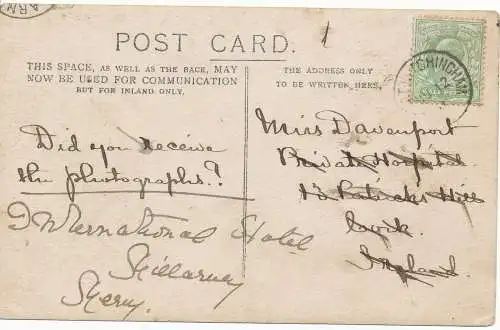 POST CARD.
THIS SPACE, AS WELL AS THE BACK, MAY
NOW BE USED FOR COMMUNICATION
BUT FOR INLAND ONLY.
THE ADDRESS ONLY
TO BE WRITTEN HERE.
Did you receive
the photographs?
International Hotel
Killarney
Kerry.
Miss Davenport
Private Hospital
13 Patricks Hill
Cork
Ireland.